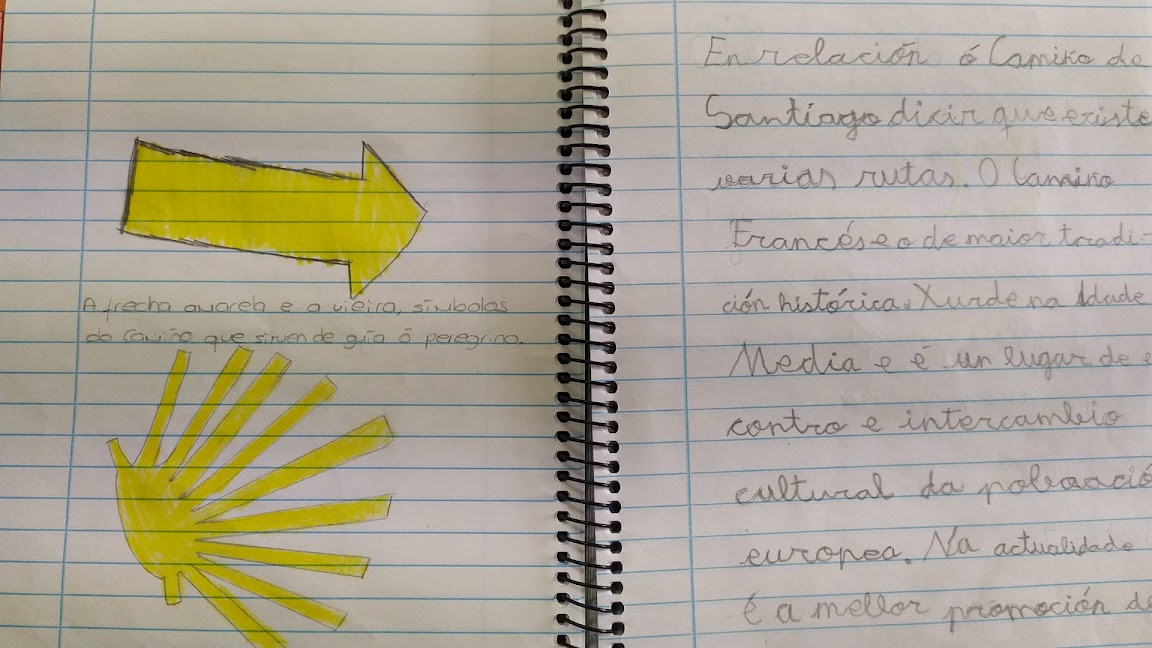 A frecha amarela e a vieira, símbolos
do Camiño que sirven de guía ó peregrino.
En relación ó Camiño de
Santiago dicir que existe
varias rutas. O Camiño
Francés e o de maior tradi-
ción histórica. Xurde na Idade
Media e é un lugar de e
contro e intercambio
cultural da poboació
europea. Na actualidade
é a mellor promoción de